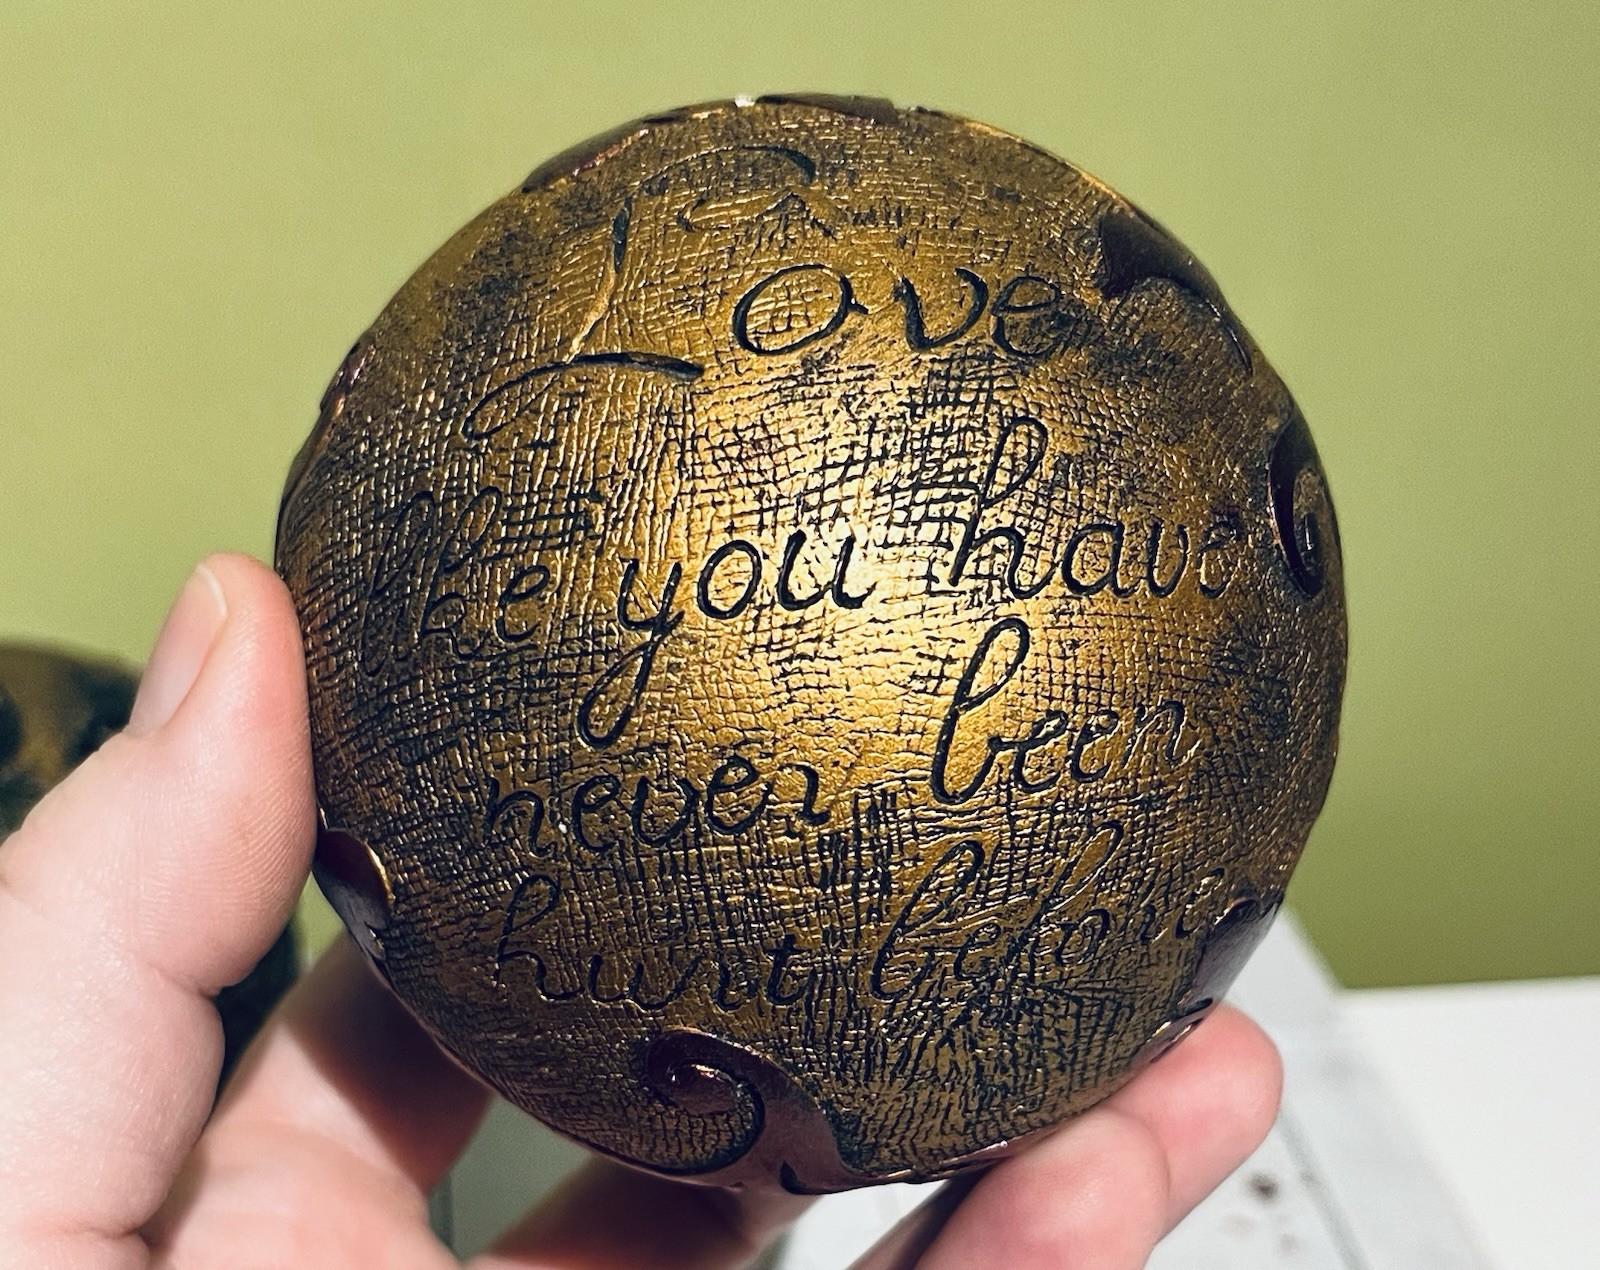 Love
like you have
never been
hurt before